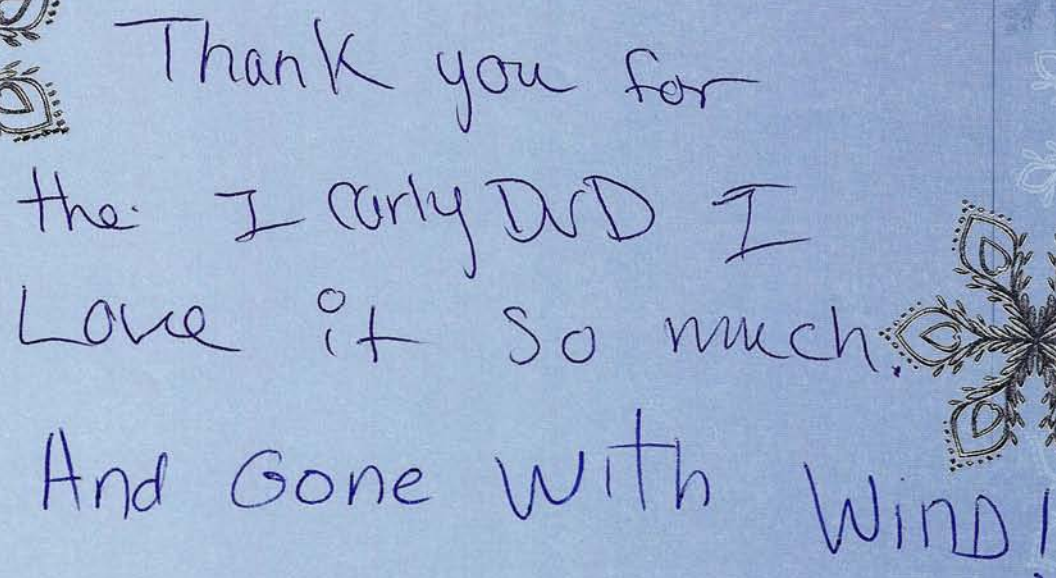 Thank you for
the I Carly DVD I
Love it so much.
And Gone With Wind!